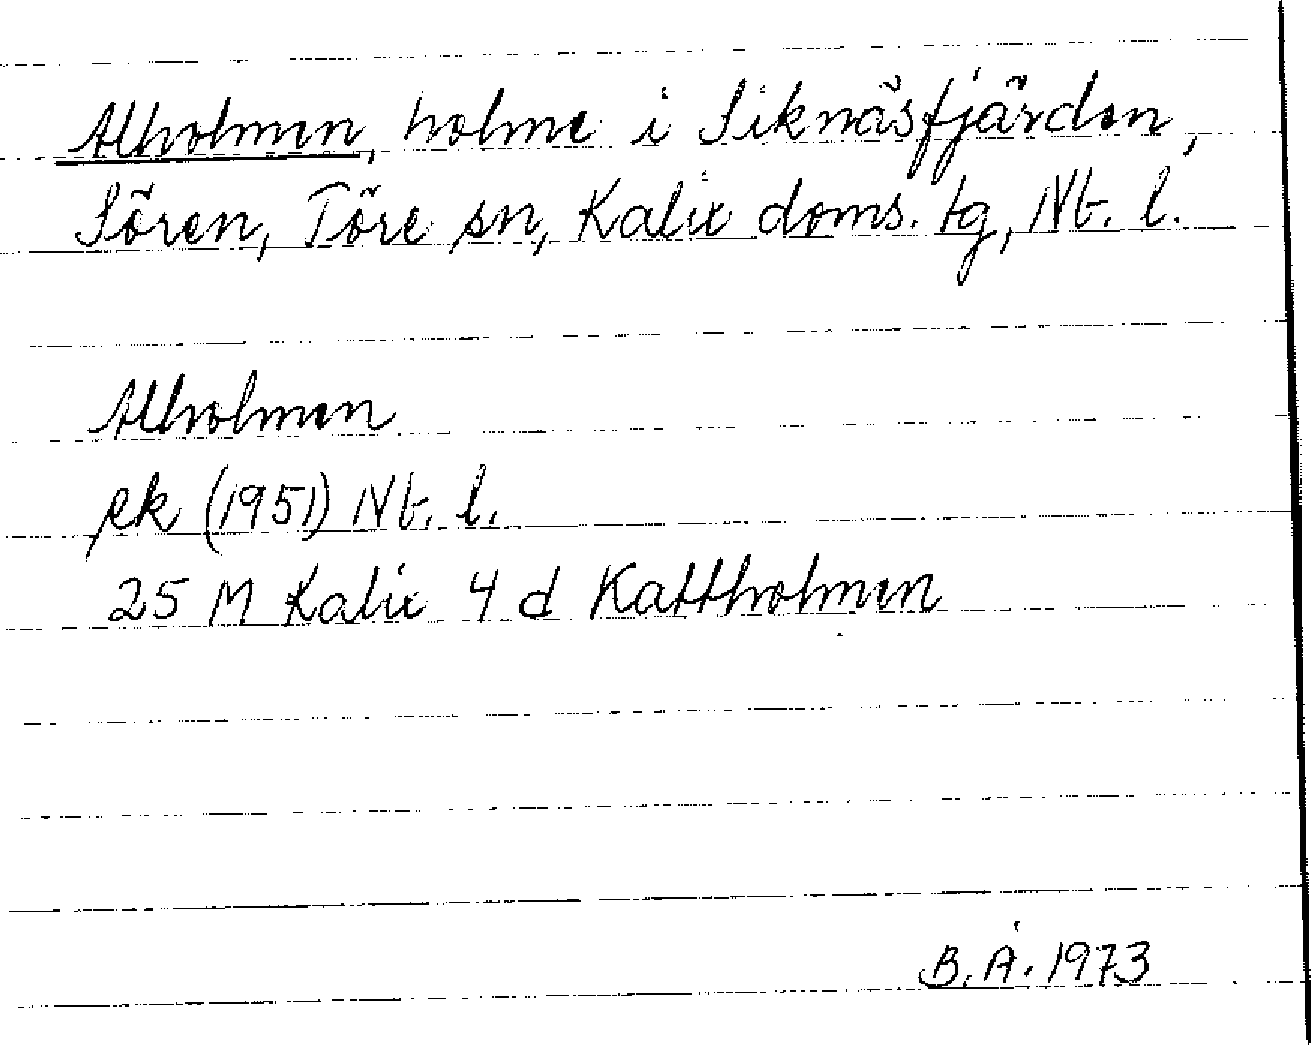 Alholmen, holme i Siknäsfjärden,
Sören, Töre sn, Kalix doms. tg, Nb. l.
Alholmen
ek (1951) Nb. l.
25 M Kalix 4 d Kattholmen
B. Å. 1973